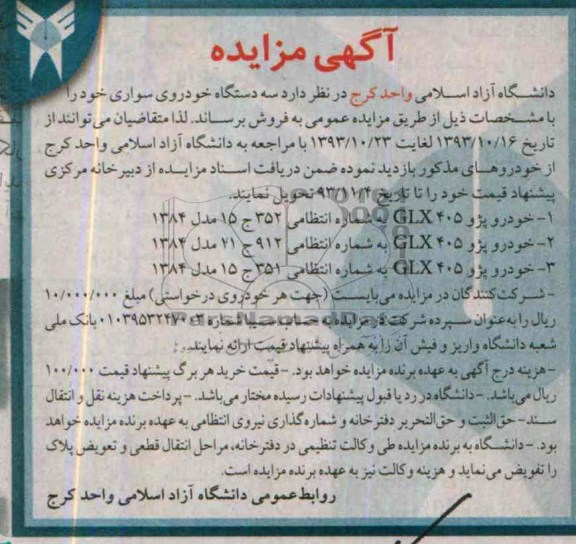 آگهی مزایده
دانشگاه آزاد اسلامی واحد کرج در نظر دارد سه دستگاه خودروی سواری خود را
با مشخصات ذیل از طریق مزایده عمومی به فروش برساند. لذا متقاضیان می توانند از
تاریخ ۱۳۹۳/۱۰/۱۶ لغایت ۱۳۹۳/۱۰/۲۳ با مراجعه به دانشگاه آزاد اسلامی واحد کرج
از خودروهای مذکور بازدید نموده ضمن دریافت اسناد مزایده از دبیرخانه مرکزی
پیشنهاد قیمت خود را تا تاریخ ۹۳/۱۱/۴ تحویل نمایند.
۱- خودرو پژو ۴۰۵ GLX به شماره انتظامی ۳۵۲ ج ۱۵ مدل ۱۳۸۴
۲- خودرو پژو ۴۰۵ GLX به شماره انتظامی ۹۱۲ ج ۲۱ مدل ۱۳۸۴
۳- خودرو پژو ۴۰۵ GLX به شماره انتظامی ۳۵۱ ج ۱۵ مدل ۱۳۸۴
- شرکت کنندگان در مزایده می بایست (جهت هر خودروی درخواستی) مبلغ ۱۰/۰۰۰/۰۰۰
ریال را به عنوان سپرده شرکت در مزایده به حساب سیبا شماره بانک ملی
ParsNamadData
شعبه دانشگاه واریز و فیش آن را به همراه پیشنهاد قیمت ارائه نمایند.
- هزینه درج آگهی به عهده برنده مزایده خواهد بود. - قیمت خرید هر برگ پیشنهاد قیمت ۱۰۰/۰۰۰
ریال می باشد. - دانشگاه در رد یا قبول پیشنهادات رسیده مختار می باشد. - پرداخت هزینه نقل و انتقال
سند- حق الثبت و حق التحریر دفترخانه و شماره گذاری نیروی انتظامی به عهده برنده مزایده خواهد
بود. - دانشگاه به برنده مزایده طی وکالت تنظیمی در دفترخانه، مراحل انتقال قطعی و تعویض پلاک
را تفویض می نماید و هزینه وکالت نیز به عهده برنده مزایده است.
روابط عمومی دانشگاه آزاد اسلامی واحد کرج